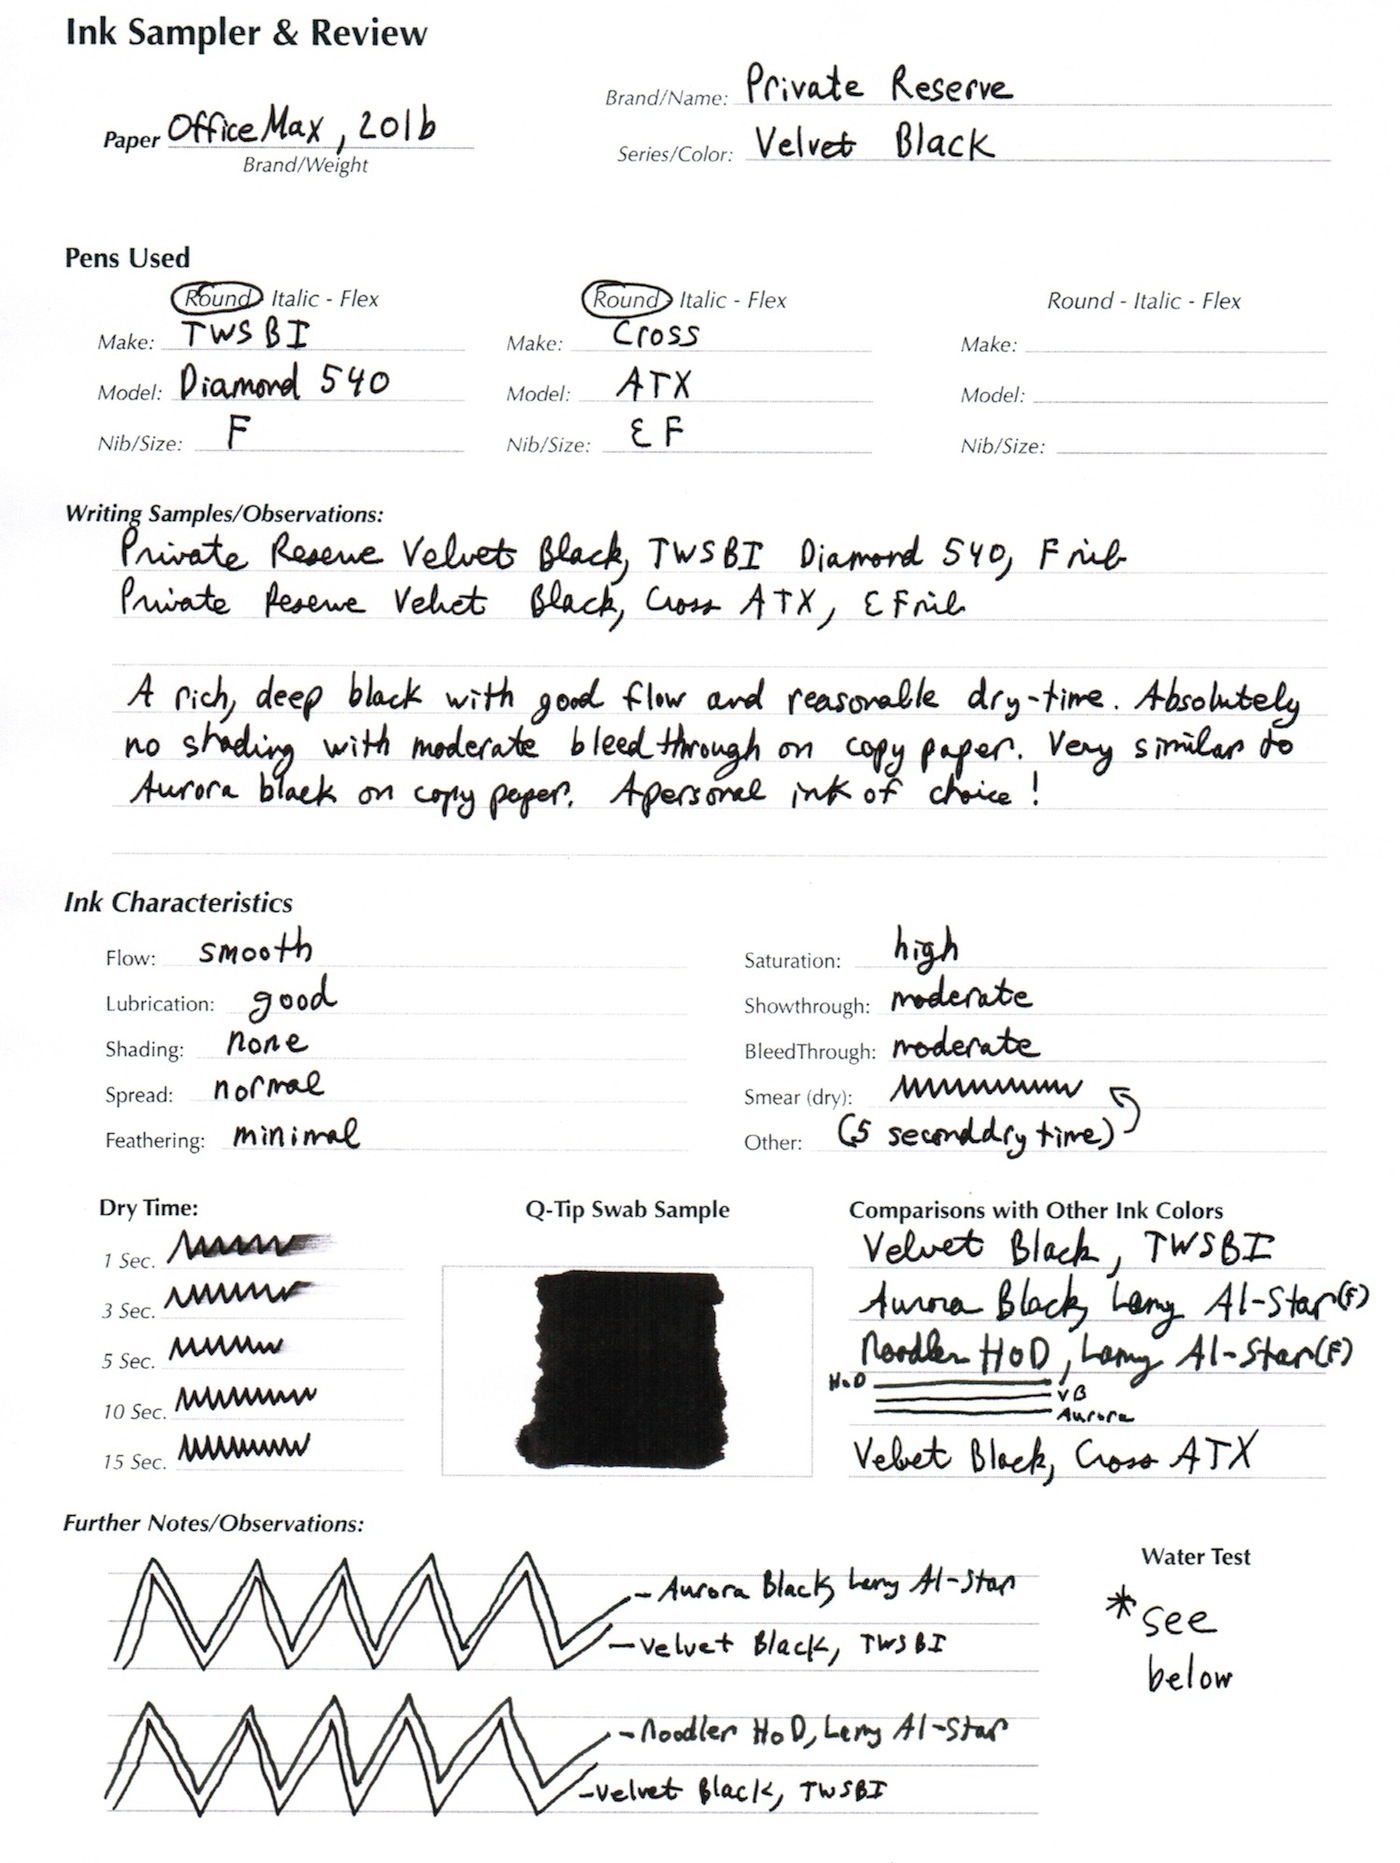 Ink Sampler & Review
Brand/Name: Private Reserve
Paper OfficeMax, 20lb
Brand/Weight
Series/Color: Velvet Black
Pens Used
Round - Italic - Flex
Round - Italic - Flex
Round - Italic - Flex
Make: TWSBI
Make: Cross
Make:
Model: Diamond 540
Model: ATX
Model:
Nib/Size: F
Nib/Size: EF
Nib/Size:
Writing Samples/Observations:
Private Reserve Velvet Black, TWSBI Diamond 540, F nib
Private Reserve Velvet Black, Cross ATX, EF nib
A rich, deep black with good flow and reasonable dry-time. Absolutely
no shading with moderate bleedthrough on copy paper. Very similar to
Aurora black on copy paper. A personal ink of choice!
Ink Characteristics
Flow: smooth
Lubrication: good
Shading: none
Spread: normal
Feathering: minimal
Saturation: high
Showthrough: moderate
BleedThrough: moderate
Smear (dry):
Other: (5 second dry time)
Dry Time:
1 Sec.
3 Sec.
5 Sec.
10 Sec.
15 Sec.
Q-Tip Swab Sample
Comparisons with Other Ink Colors
Velvet Black, TWSBI
Aurora Black, Lamy Al-Star(F)
Noodler HoD, Lamy Al-Star(F)
HoD
VB
Aurora
Velvet Black, Cross ATX
Further Notes/Observations:
- Aurora Black, Lamy Al-Star
- Velvet Black, TWSBI
- Noodler HoD, Lamy Al-Star
- Velvet Black, TWSBI
Water Test
* see
below